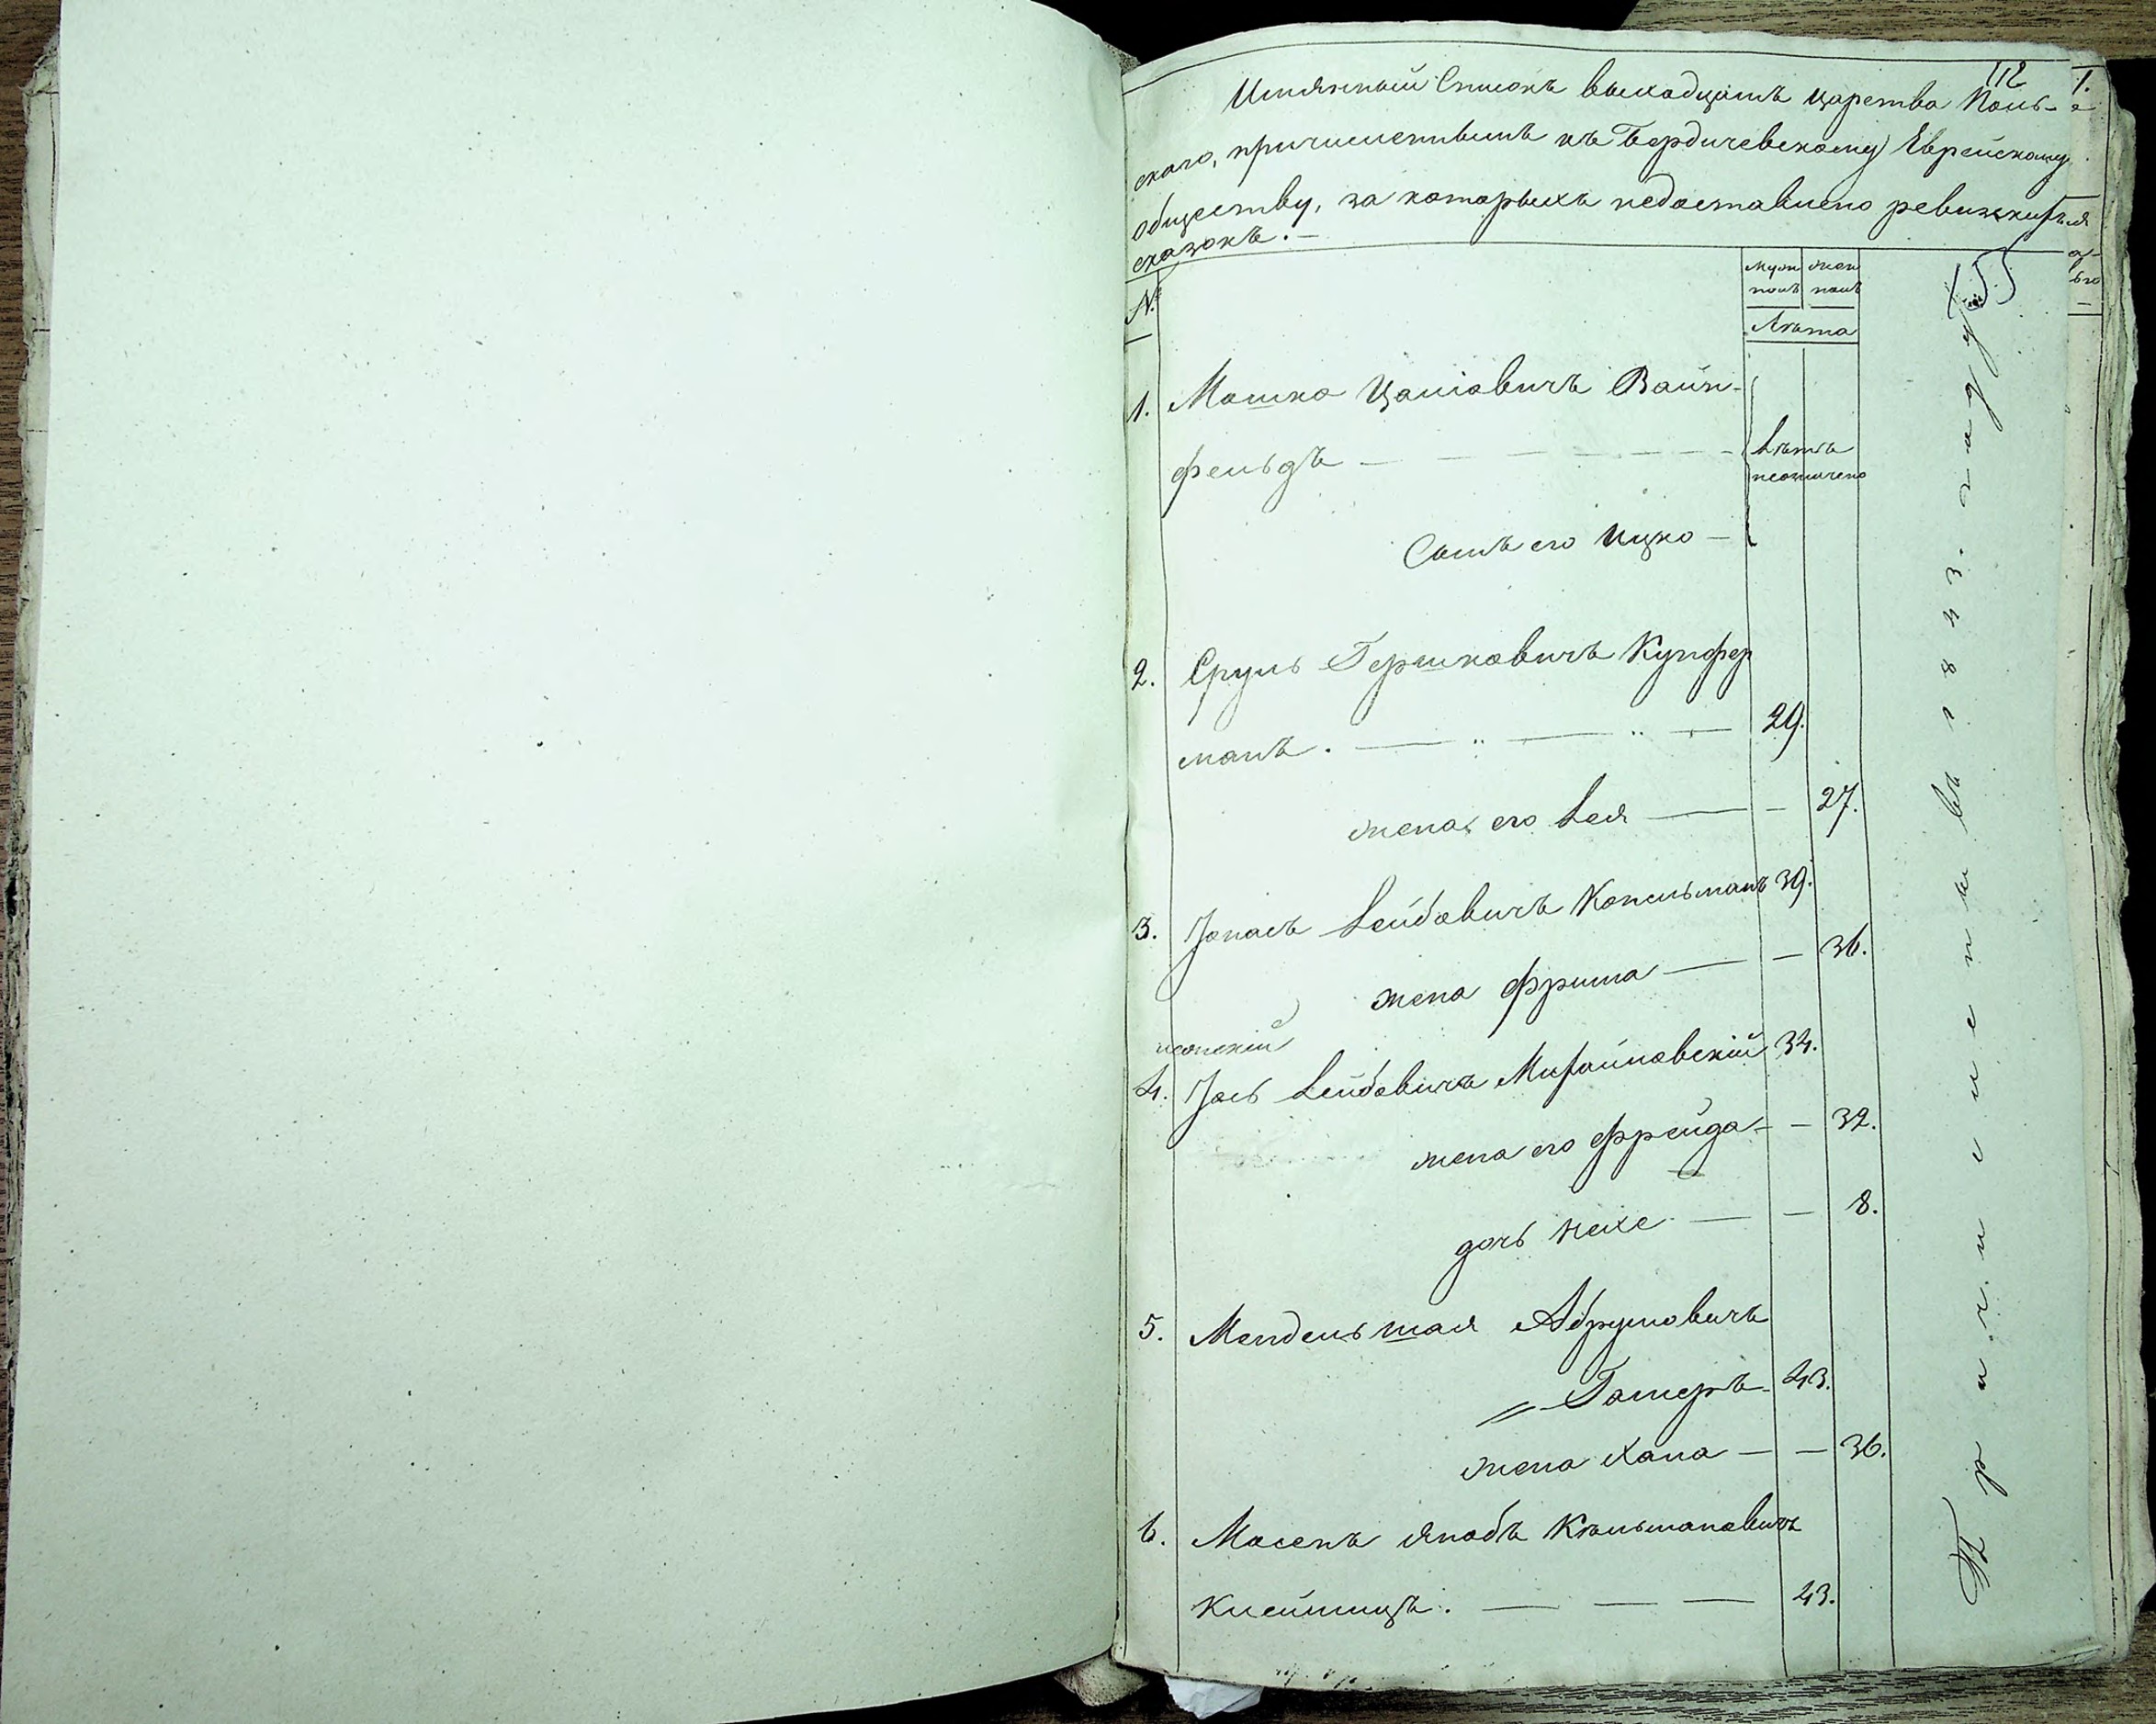 112
Имянный Списокъ выходцамъ царства Поль-
скаго, причисленнымъ къ Бердичевскому Еврейскому
обществу, за которыхъ недоставлено ревизскихъ
сказокъ. —
№
муж полъ
жен полъ
Лѣта
155
1. Мошко Цаліовичъ Вайн-
фельдъ —
Лѣтъ
неозначено
Сынъ его Ицко —
2. Сруль Гершковичъ Купфер
манъ. — 29.
жена его Лея — 27.
3. Іонасъ Лейбовичъ Копельманъ 39.
жена Фрима — 36.
4. Іось Лейбовичъ 34.
жена его Фрейда — 32.
дочь Нехе — 8.
5. Мендель Шая Абрумовичъ
Гамеръ — 43.
жена Хана — 36.
6. Мосекъ Якобъ Кѣльмановичъ
. — 43.
Причислены въ 1843. году